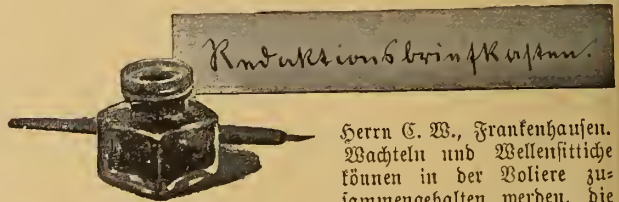 Redaktionsbriefkasten.
Herrn C. W., Frankenhausen.
Wachteln und Wellensittiche
können in der Voliere zu=
sammengehalten werden, die